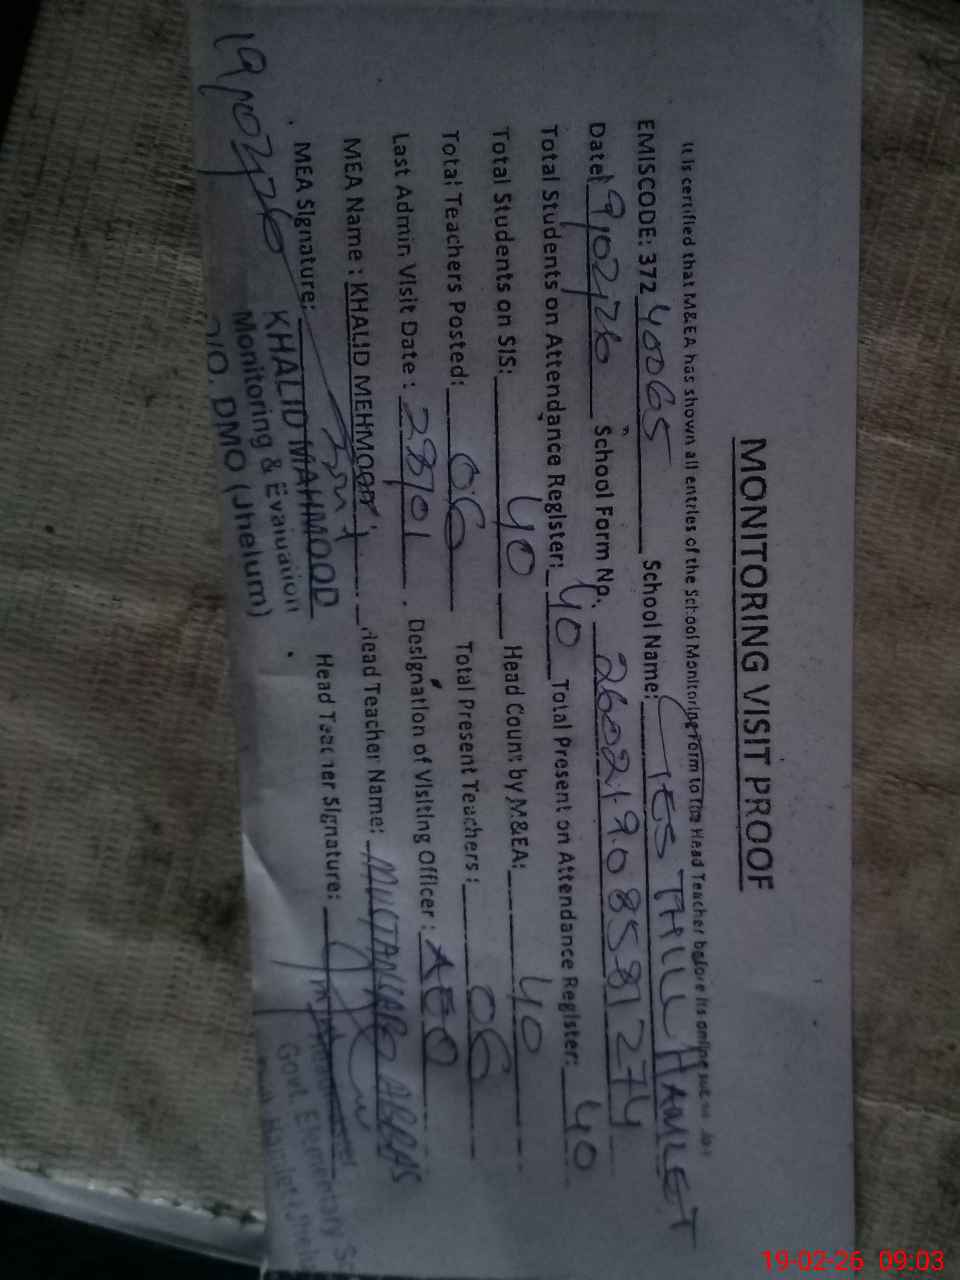 MONITORING VISIT PROOF
It is certified that M&EA has shown all entries of the School Monitoring Form to the Head Teacher before its online
EMISCODE: 37240065 School Name: GES THILL HAMLET
Date: 19/02/26 School Form No. 260219085581274
Total Students on Attendance Register: 40 Total Present on Attendance Register: 40
Total Students on SIS: 40 Head Count by M&EA: 40
Total Teachers Posted: 06 Total Present Teachers: 06
Last Admin Visit Date: 28/01 Designation of Visiting Officer: AEO
MEA Name: KHALID MEHMOOD Head Teacher Name: ABBAS
MEA Signature: Head Teacher Signature:
19/02/26
KHALID MAHMOOD
Monitoring & Evaluation
O/O. DMO (Jhelum)
Govt. Elementary
Hamlet
19-02-26 09:03